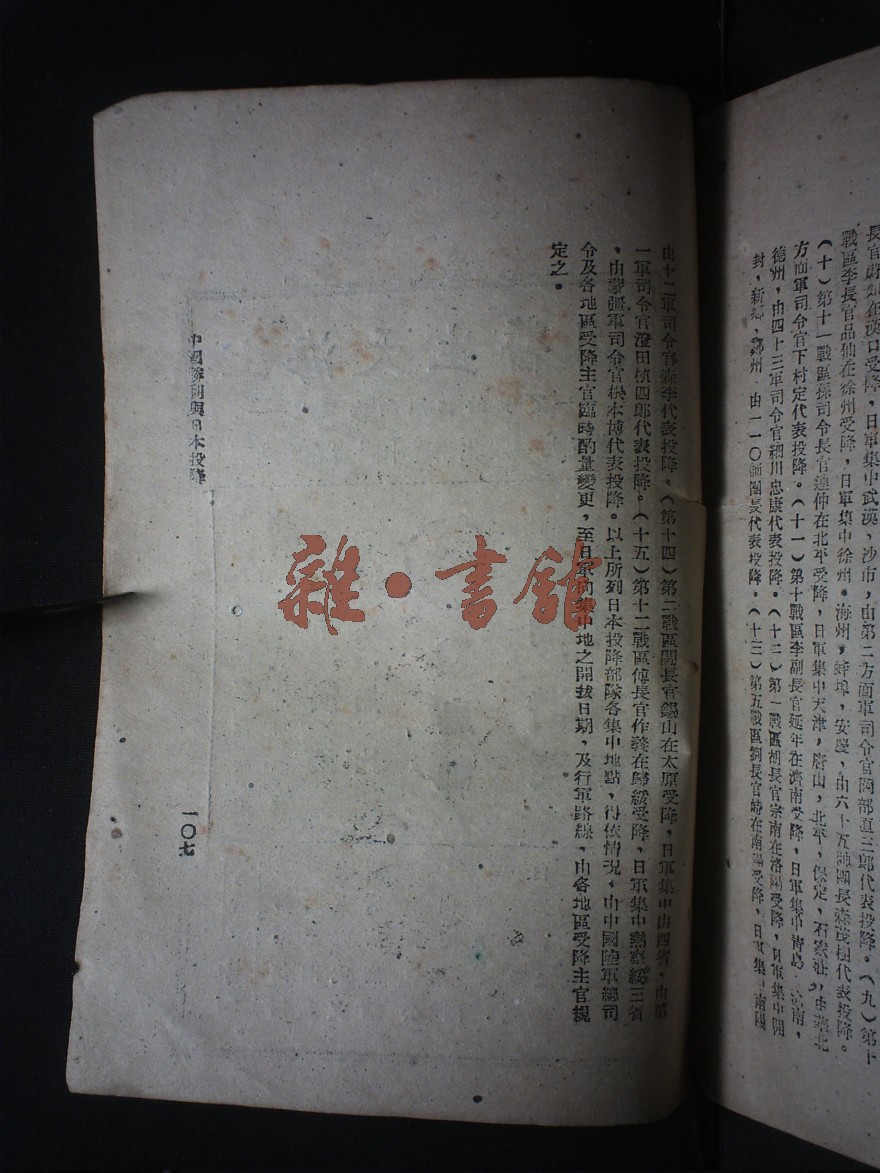 長官蔚如在漢口受降，日軍集中武漢，沙市，由第六方面軍司令官岡部直三郎代表投降。（九）第十
戰區李長官品仙在徐州受降，日軍集中徐州。海州，蚌埠，安慶，由六十五師團長森茂樹代表投降。
（十）第十一戰區孫司令長官連仲在北平受降，日軍集中天津，唐山，北平，保定，石家莊，由華北
方面軍司令官下村定代表投降。（十一）第十戰區李副長官延年在濟南受降，日軍集中青島，濟南，
德州，由四十三軍司令官細川忠康代表投降。（十二）第一戰區胡長官宗南在洛陽受降，日軍集中開
封，新鄉，鄭州，由一一〇師團長代表投降。（十三）第五戰區劉長官峙在南陽受降，日軍集中南陽
由十二軍司令官 代表投降。（第十四）第二戰區閻長官錫山在太原受降，日軍集中山西省，由第
一軍司令官澄田𧶛四郎代表投降。（十五）第十二戰區傅長官作義在歸綏受降，日軍集中熱察綏三省
，由蒙疆軍司令官根本博代表投降。以上所列日本投降部隊各集中地點，得依情況，由中國陸軍總司
令及各地區受降主官臨時酌量變更，至日軍向集中地之開拔日期，及行軍路線，由各地區受降主官規
定之。
中國勝利與日本投降
一〇七
雜·書館